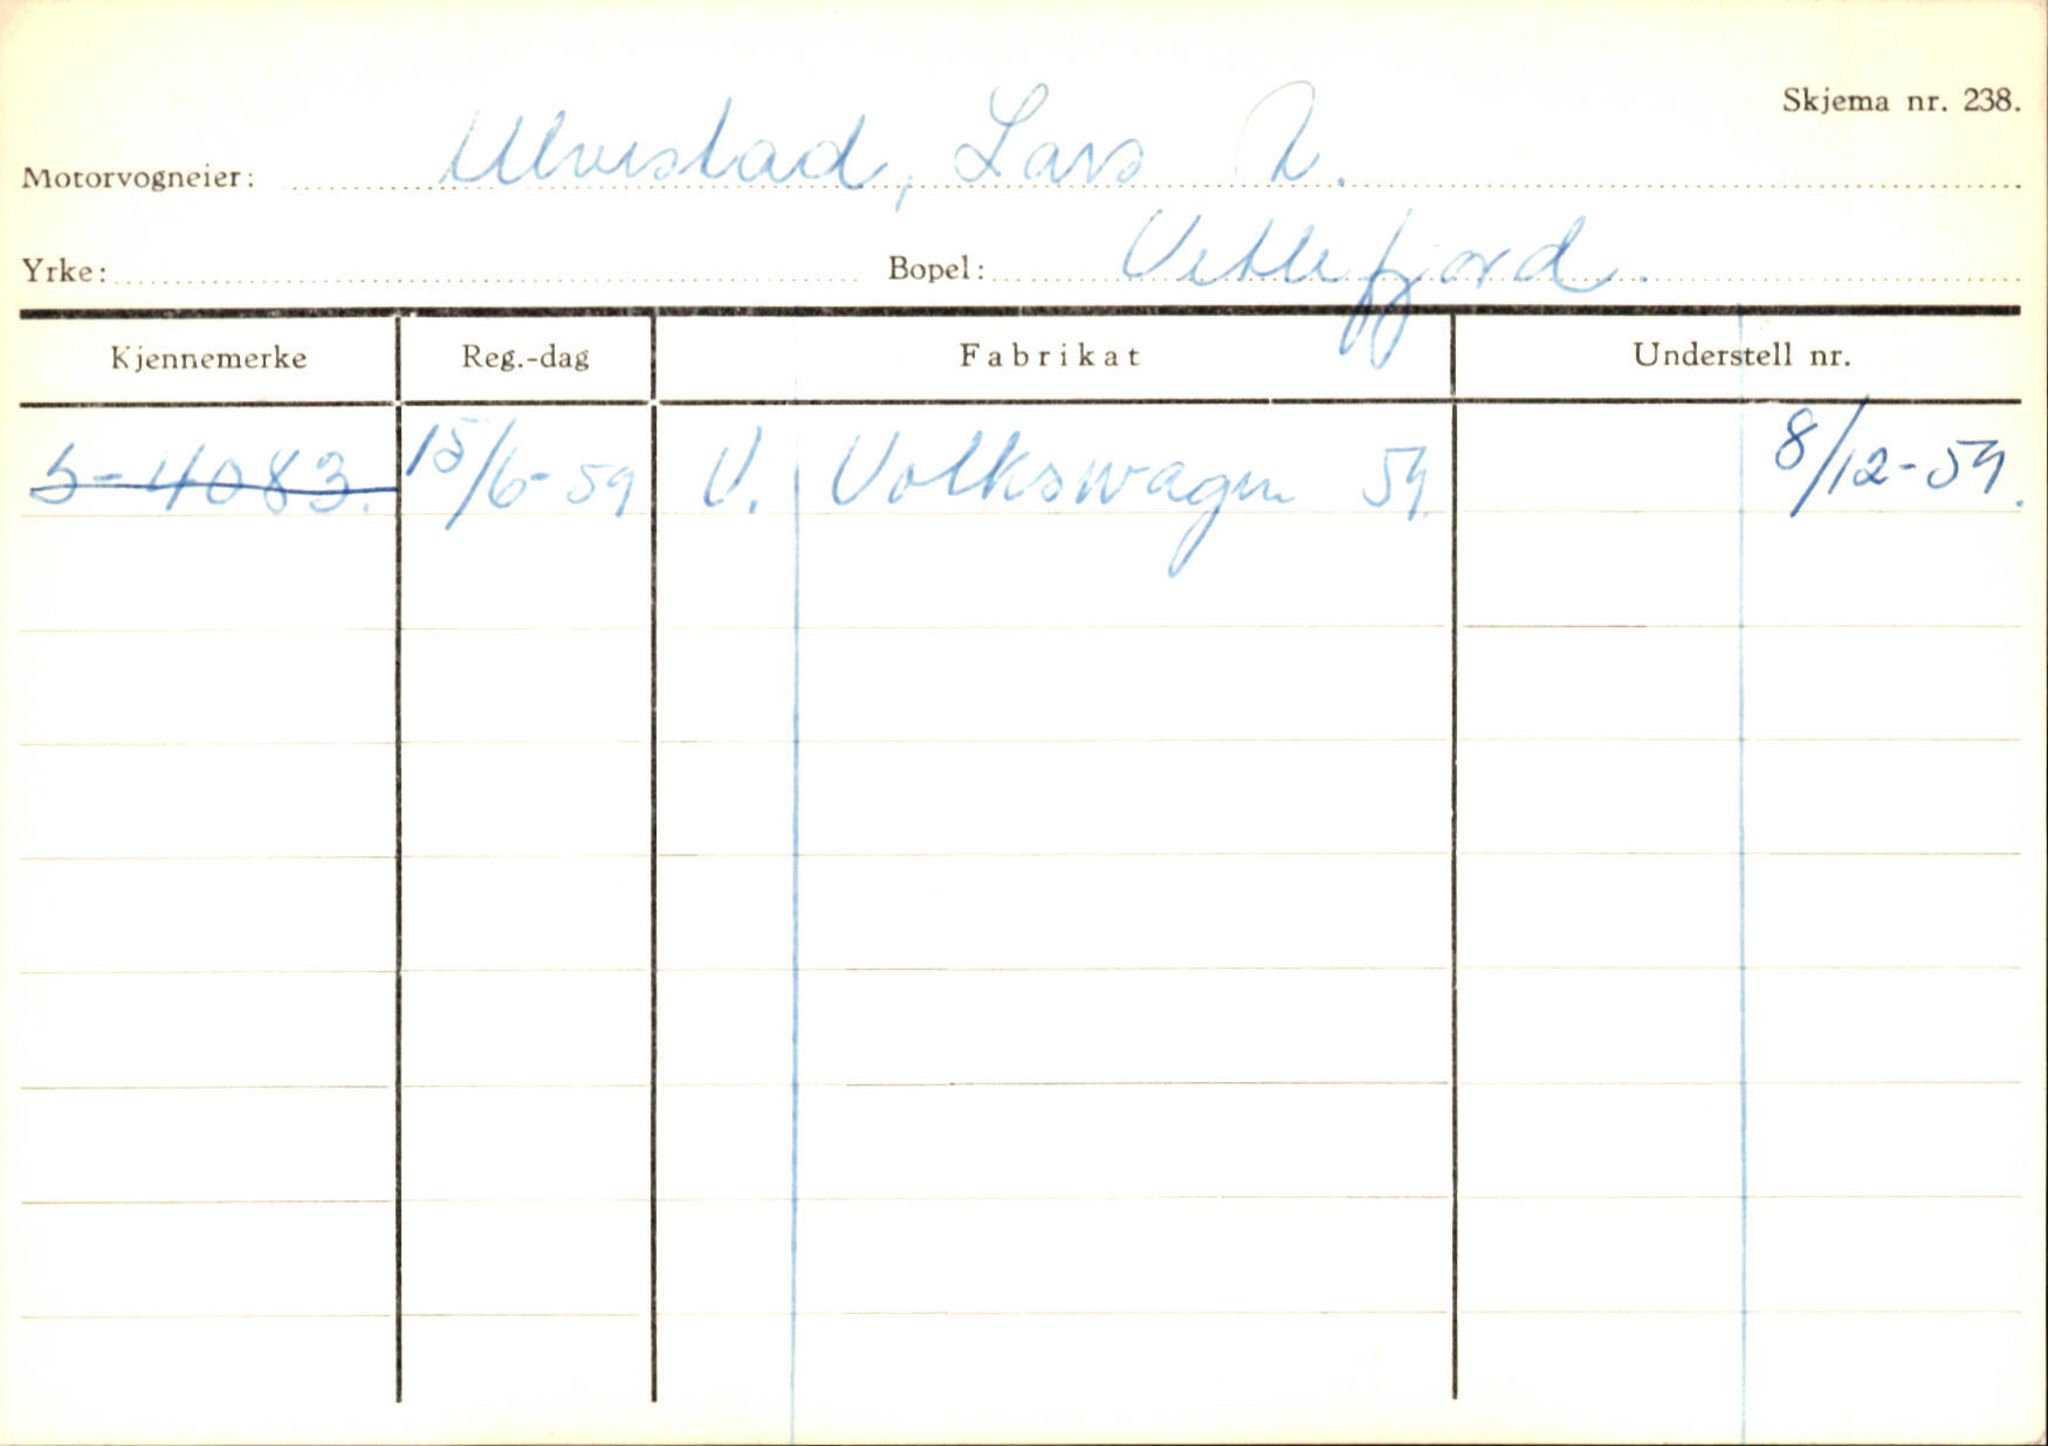 Skjema nr. 238.
Motorvogneier: Ulvestad, Lars
Yrke: Bopel: Vetlefjord.
Kjennemerke Reg.-dag Fabrikat Understell nr.
S-4083. 15/6-59 V. Volkswagen 59. 8/12-59.